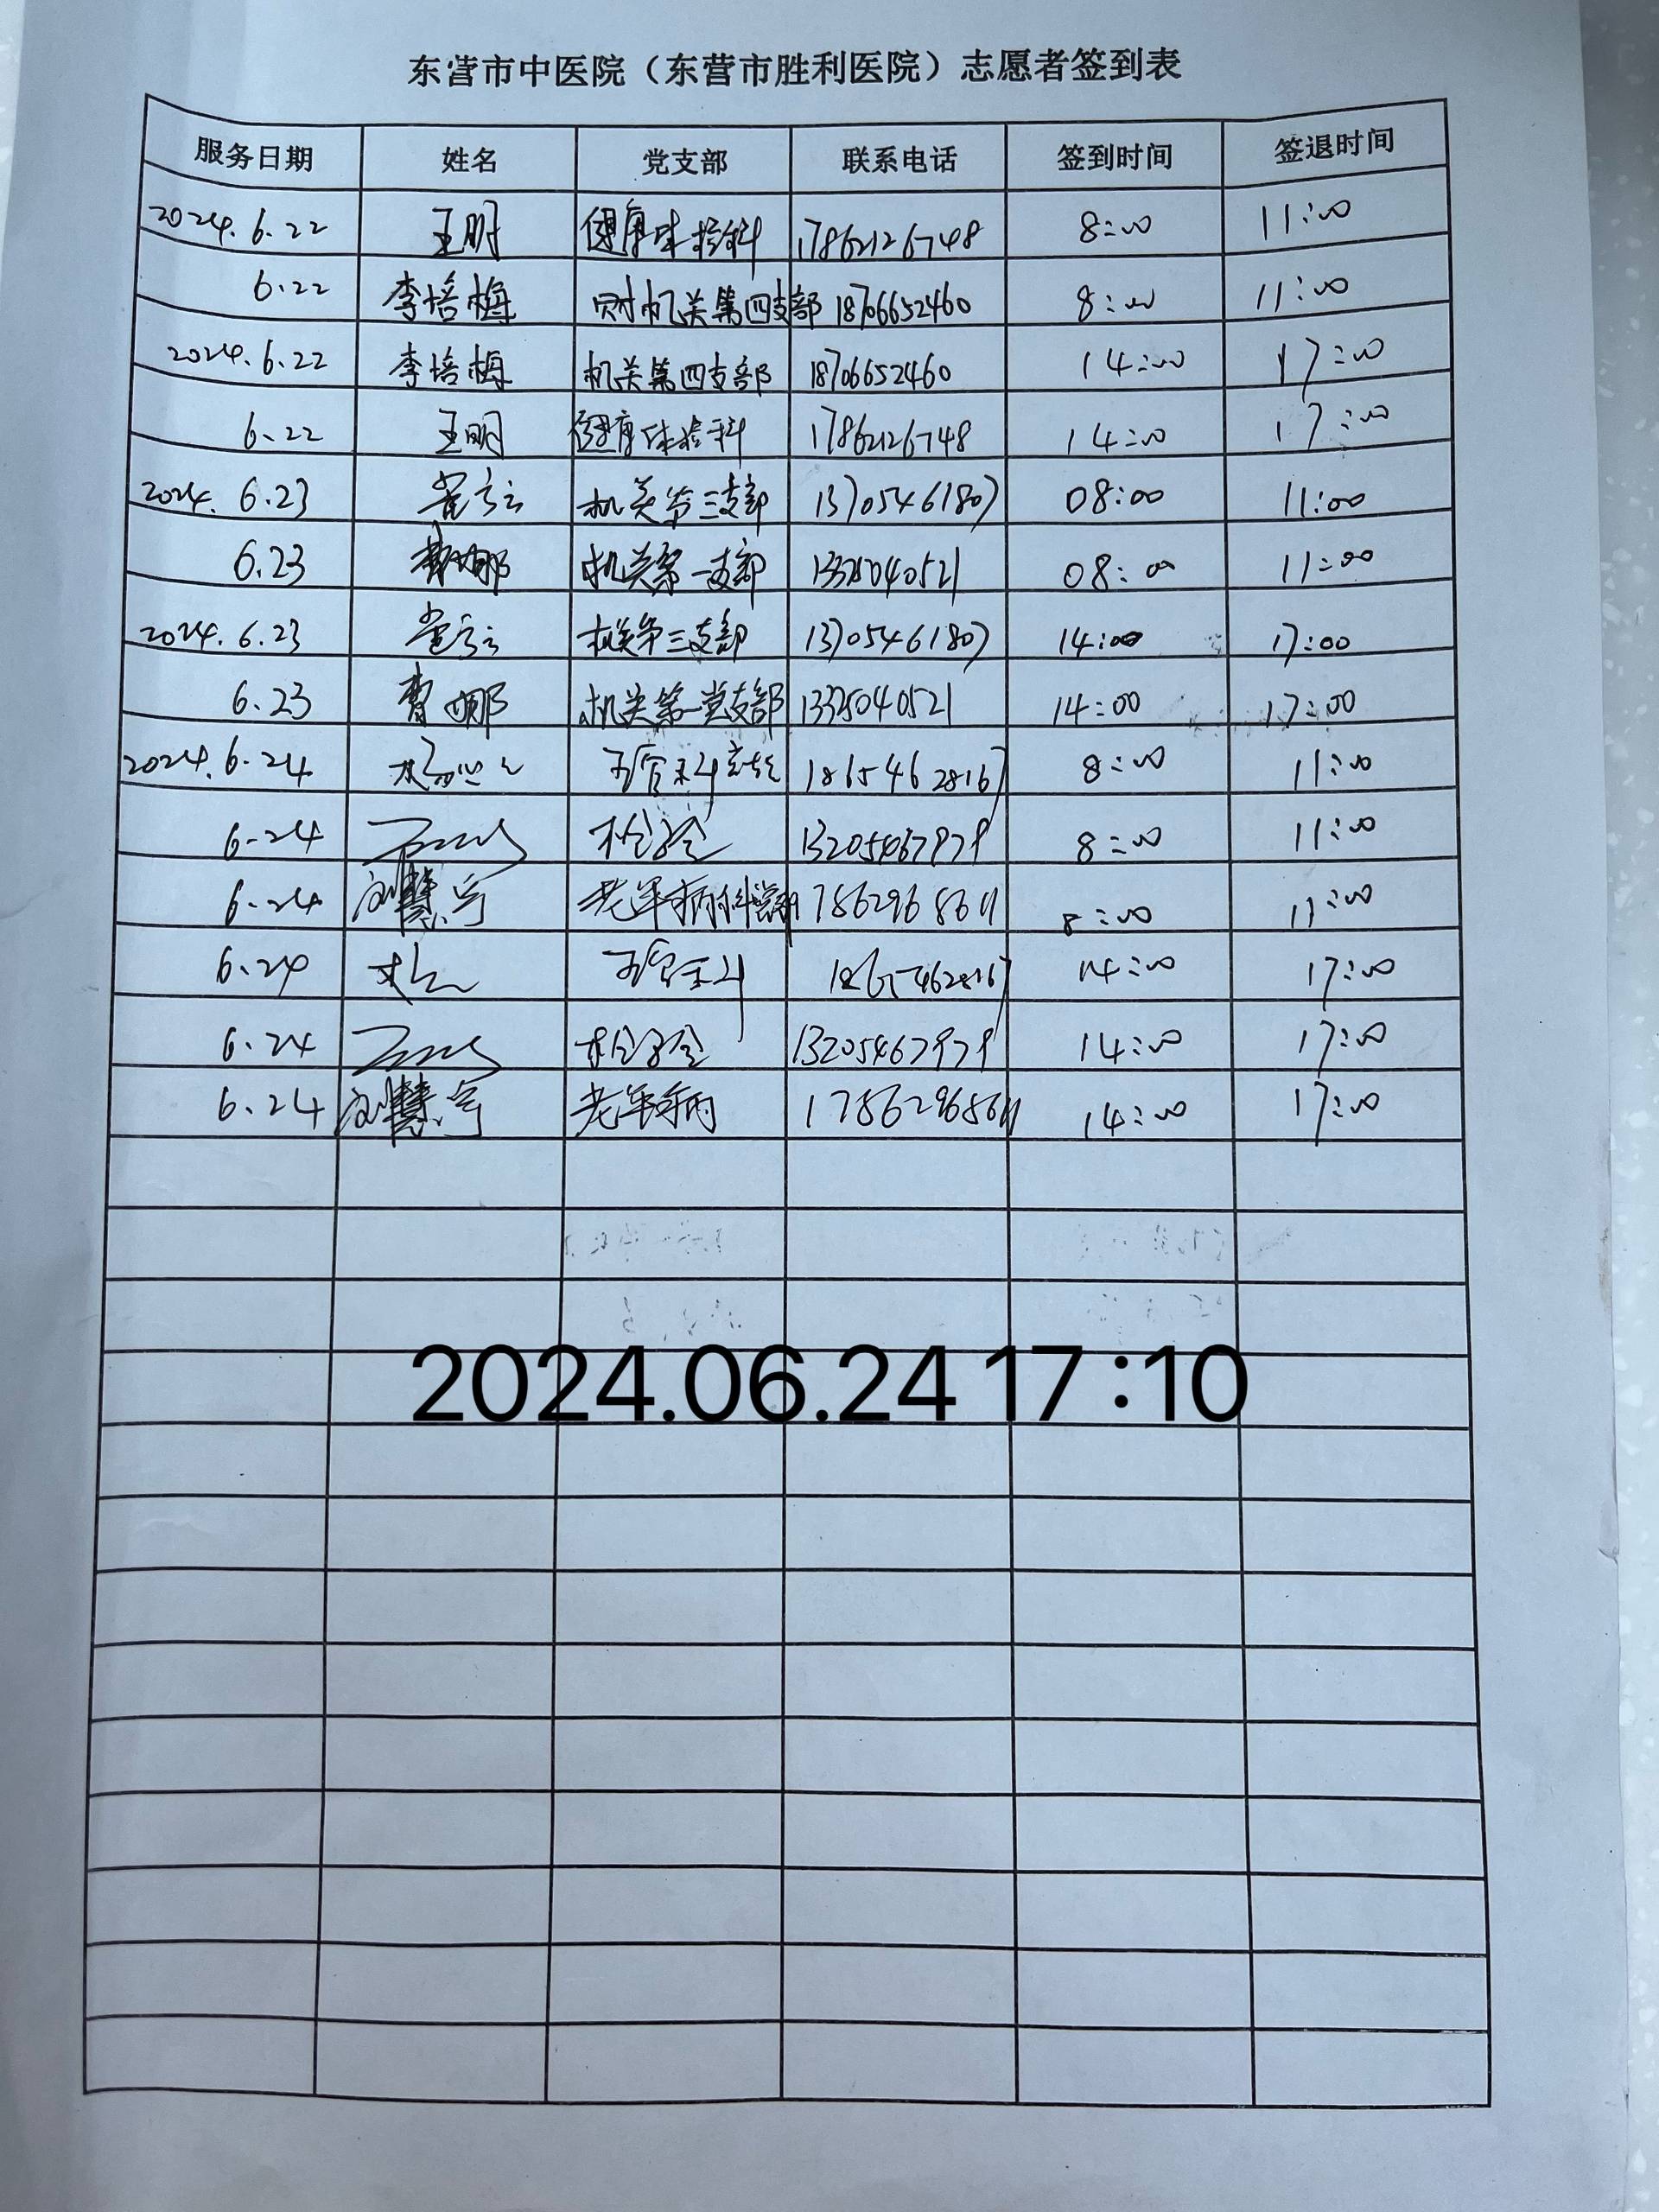 东营市中医院（东营市胜利医院）志愿者签到表
服务日期 姓名 党支部 联系电话 签到时间 签退时间
2024.6.22 王明 健康体检科 17862126748 8:00 11:00
6.22 李培梅 机关第四支部 18706652460 8:00 11:00
2024.6.22 李培梅 机关第四支部 18706652460 14:00 17:00
6.22 王明 健康体检科 17862126748 14:00 17:00
2024.6.23 机关第三支部 13705461807 08:00 11:00
6.23 机关第一支部 08:00 11:00
2024.6.23 机关第三支部 13705461807 14:00 17:00
6.23 曹娜 机关第一党支部 14:00 17:00
2024.6.24 五官科 18654628167 8:00 11:00
6.24 8:00 11:00
6.24 刘慧宁 老年病科 17862968611 8:00 11:00
6.24 五官科 18654628167 14:00 17:00
6.24 14:00 17:00
6.24 刘慧宁 老年病 17862968611 14:00 17:00
2024.06.24 17:10